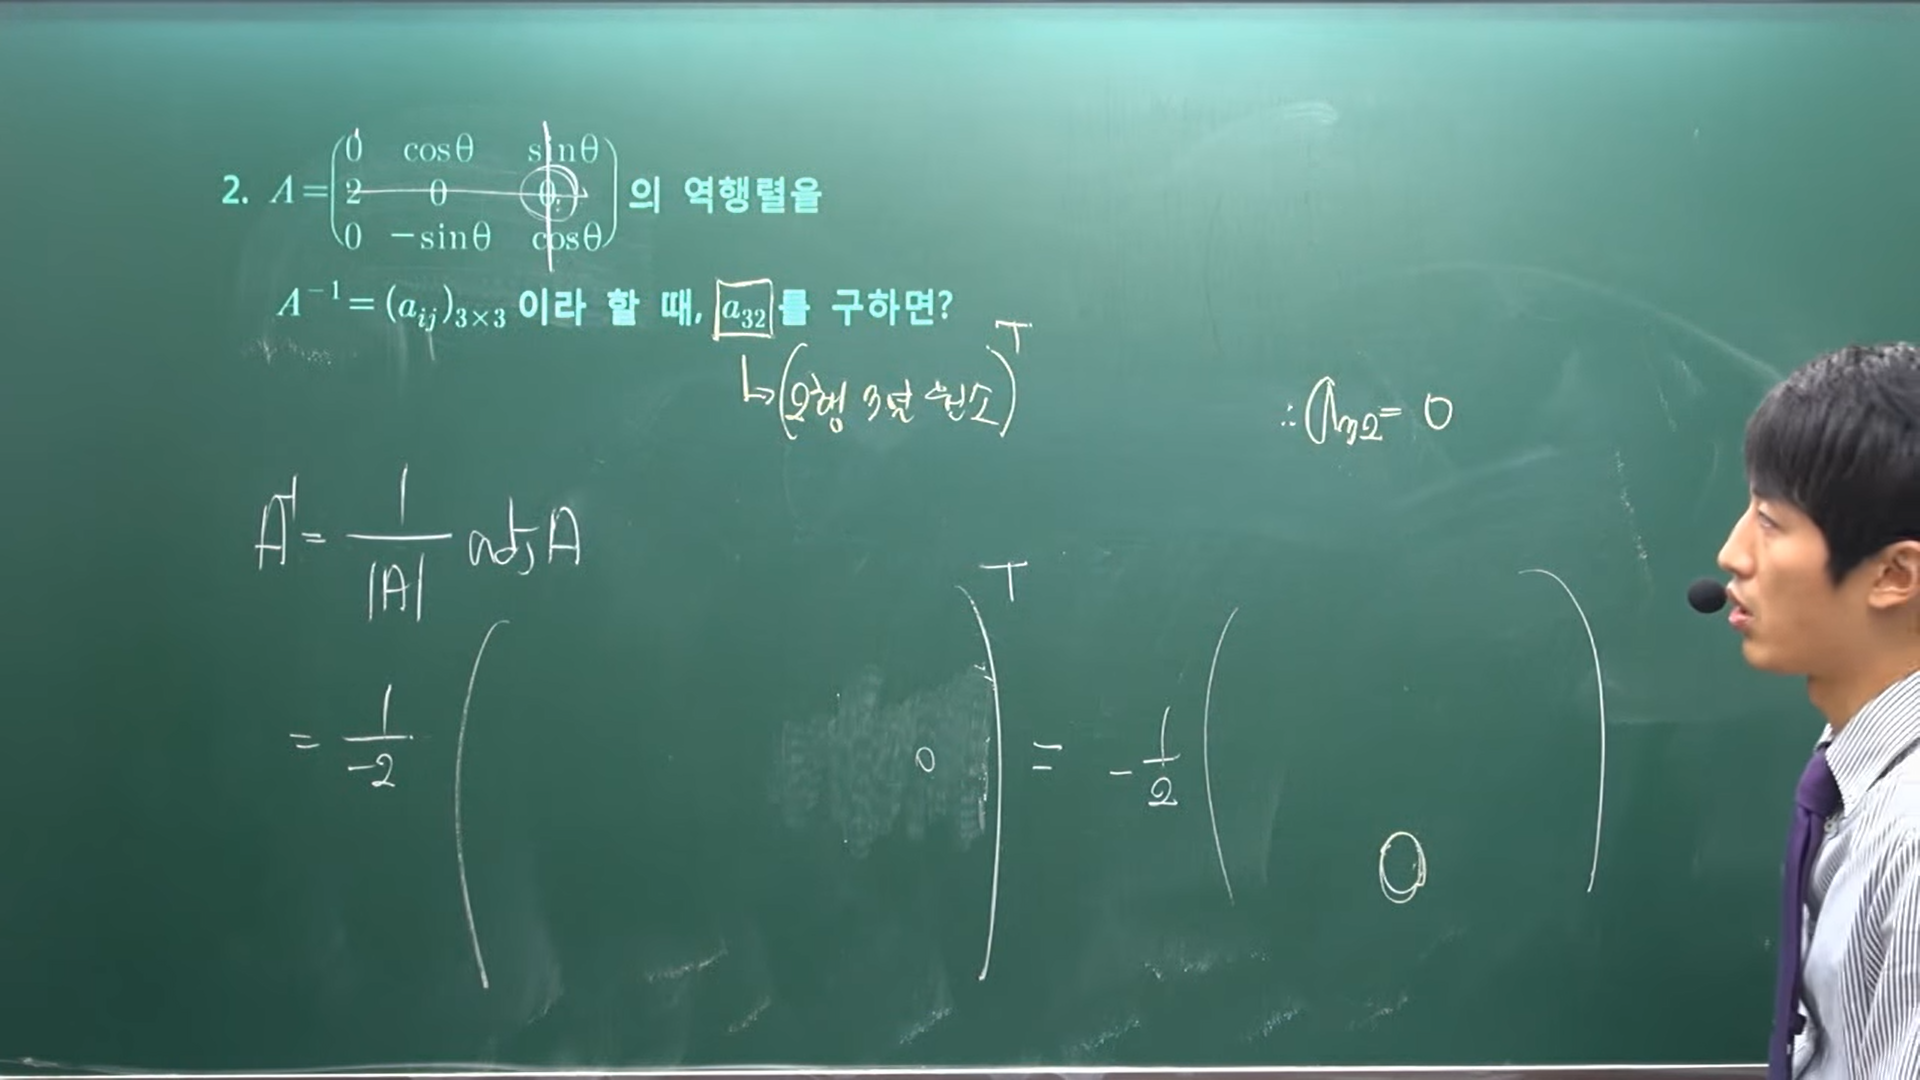 2. A = (0 cosθ sinθ
2 0 0
0 −sinθ cosθ) 의 역행렬을
A⁻¹ = (aᵢⱼ)₃ₓ₃ 이라 할 때, a₃₂ 를 구하면?
↳ (2행 3열 원소)ᵀ
∴ a₃₂ = 0
A⁻¹ = 1/|A| adj A
= 1/-2 ( 0 )ᵀ = - 1/2 ( 0 )